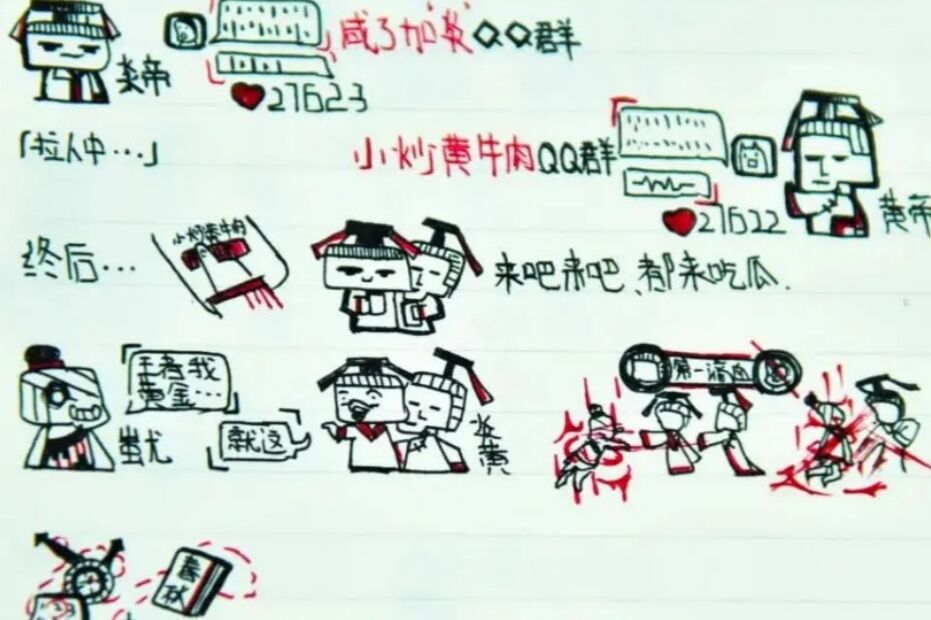 炎帝
咸了加炎QQ群
27623
「拉人中…」
小炒黄牛肉QQ群
27622
黄帝
终后…
小炒黄牛肉
来吧来吧、都来吃瓜.
王者我
黄金…
蚩尤
就这
炎
黄
第一滴血
春
秋